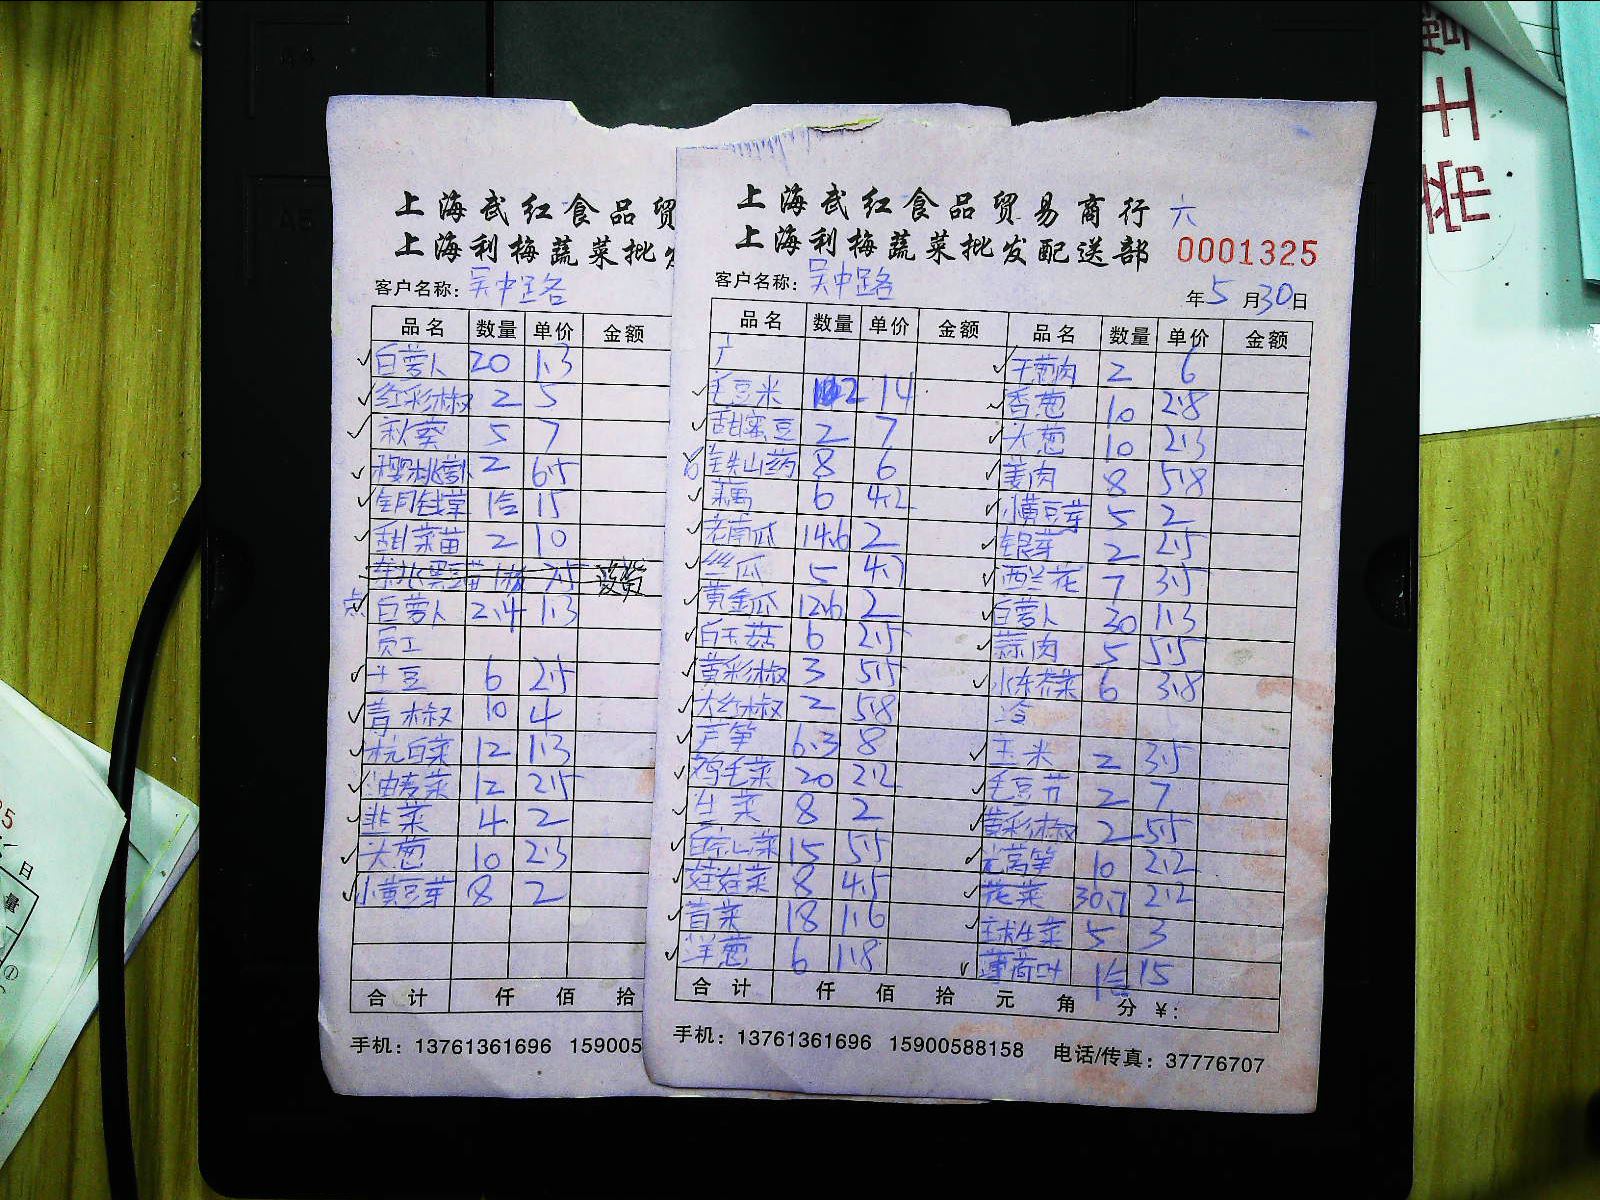 上海武红食品贸
上海利梅蔬菜批发
客户名称：吴中路
品名 数量 单价 金额
白萝卜 20 1.3
红彩椒 2 5
秋葵 5 7
樱桃萝卜 2 6.5
铜钱草 1盒 15
甜菜苗 2 10
点 白萝卜 2.4 1.3
员工
土豆 6 2.5
青椒 10 4
杭白菜 12 1.3
油麦菜 12 2.5
韭菜 4 2
大葱 10 2.3
小黄豆芽 8 2
合计 仟 佰 拾
手机：13761361696 159005
上海武红食品贸易商行 六
上海利梅蔬菜批发配送部 0001325
客户名称：吴中路 年5月30日
品名 数量 单价 金额 品名 数量 单价 金额
广 干葱肉 2 6
毛豆米 2 14 香葱 10 2.8
甜蜜豆 2 7 大葱 10 2.3
铁山药 8 6 姜肉 8 5.8
莲藕 6 4.2 小黄豆芽 5 2
老南瓜 14.6 2 银芽 2 2.5
丝瓜 5 4.7 西兰花 7 3.5
黄金瓜 12.6 2 白萝卜 30 1.3
白玉菇 6 2.5 蒜肉 5 5.5
黄彩椒 3 5.5 水东芥菜 6 3.8
大红椒 2 5.8 冷
芦笋 6.3 8 玉米 2 3.5
鸡毛菜 20 2.2 毛豆节 2 7
生菜 8 2 黄彩椒 2 5.5
15 5.5 光莴笋 10 2.2
娃娃菜 8 4.5 花菜 30.7 2.2
18 1.6 球生菜 5 3
洋葱 6 1.8 薄荷叶 1盒 15
合计 仟 佰 拾 元 角 分 ¥：
手机：13761361696 15900588158 电话/传真：37776707
帝王
日
量